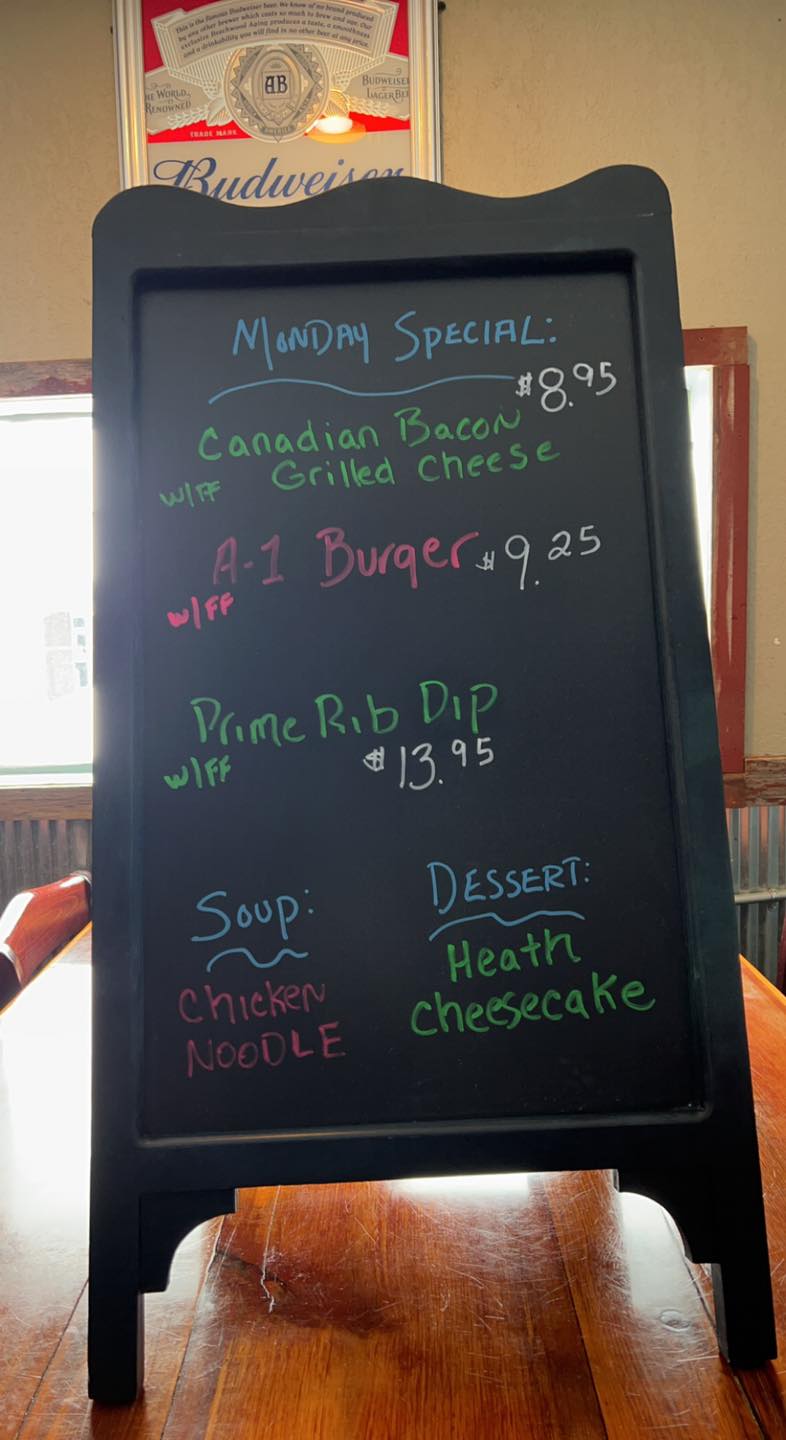 This is the famous Budweiser beer. We know of no brand produced
by any other brewer which costs so much to brew and age. Our
exclusive Beechwood Aging produces a taste, a smoothness
and a drinkability you will find in no other beer at any price.
AB
HE WORLD
RENOWNED
BUDWEISER
LAGER BEE
TRADE MARK
AMERICA
Budweiser
MONDAY SPECIAL:
$8.95
Canadian Bacon
w/FF Grilled Cheese
A-1 Burger $9.25
w/FF
Prime Rib Dip
w/FF $13.95
Soup:
Chicken
NOODLE
DESSERT:
Heath
Cheesecake